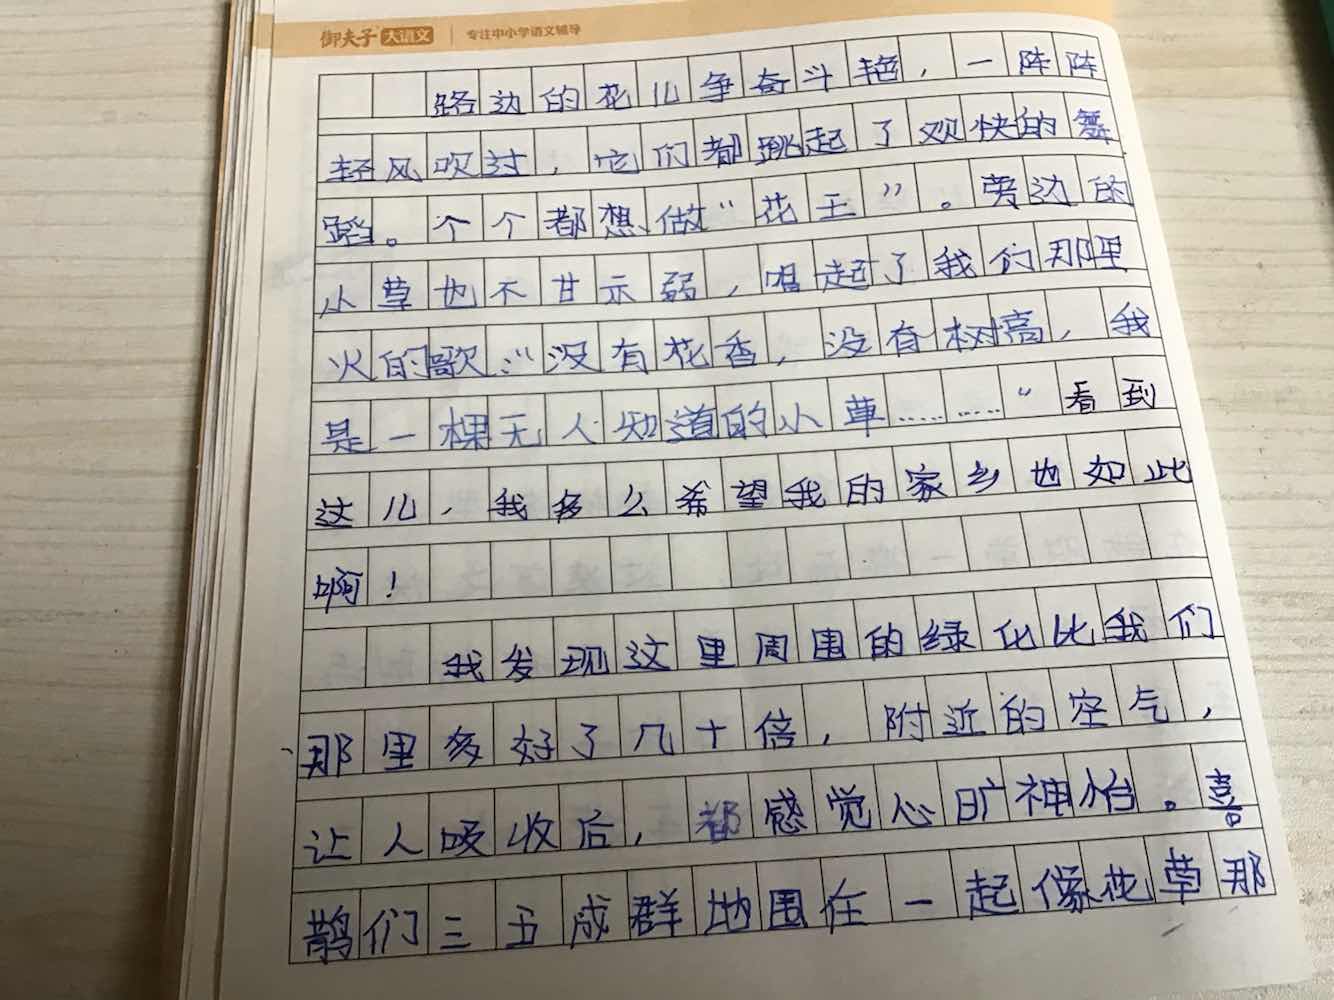 御夫子 大语文 | 专注中小学语文辅导
路边的花儿争奇斗艳，一阵阵
轻风吹过，它们都跳起了欢快的舞
蹈。个个都想做“花王”。旁边的
小草也不甘示弱，唱起了我们那里
火的歌：“没有花香，没有树高，我
是一棵无人知道的小草…………”看到
这儿，我多么希望我的家乡也如此
啊！
我发现这里周围的绿化比我们
那里多好了几十倍，附近的空气，
让人吸收后，都感觉心旷神怡。喜
鹊们三五成群地围在一起像花草那